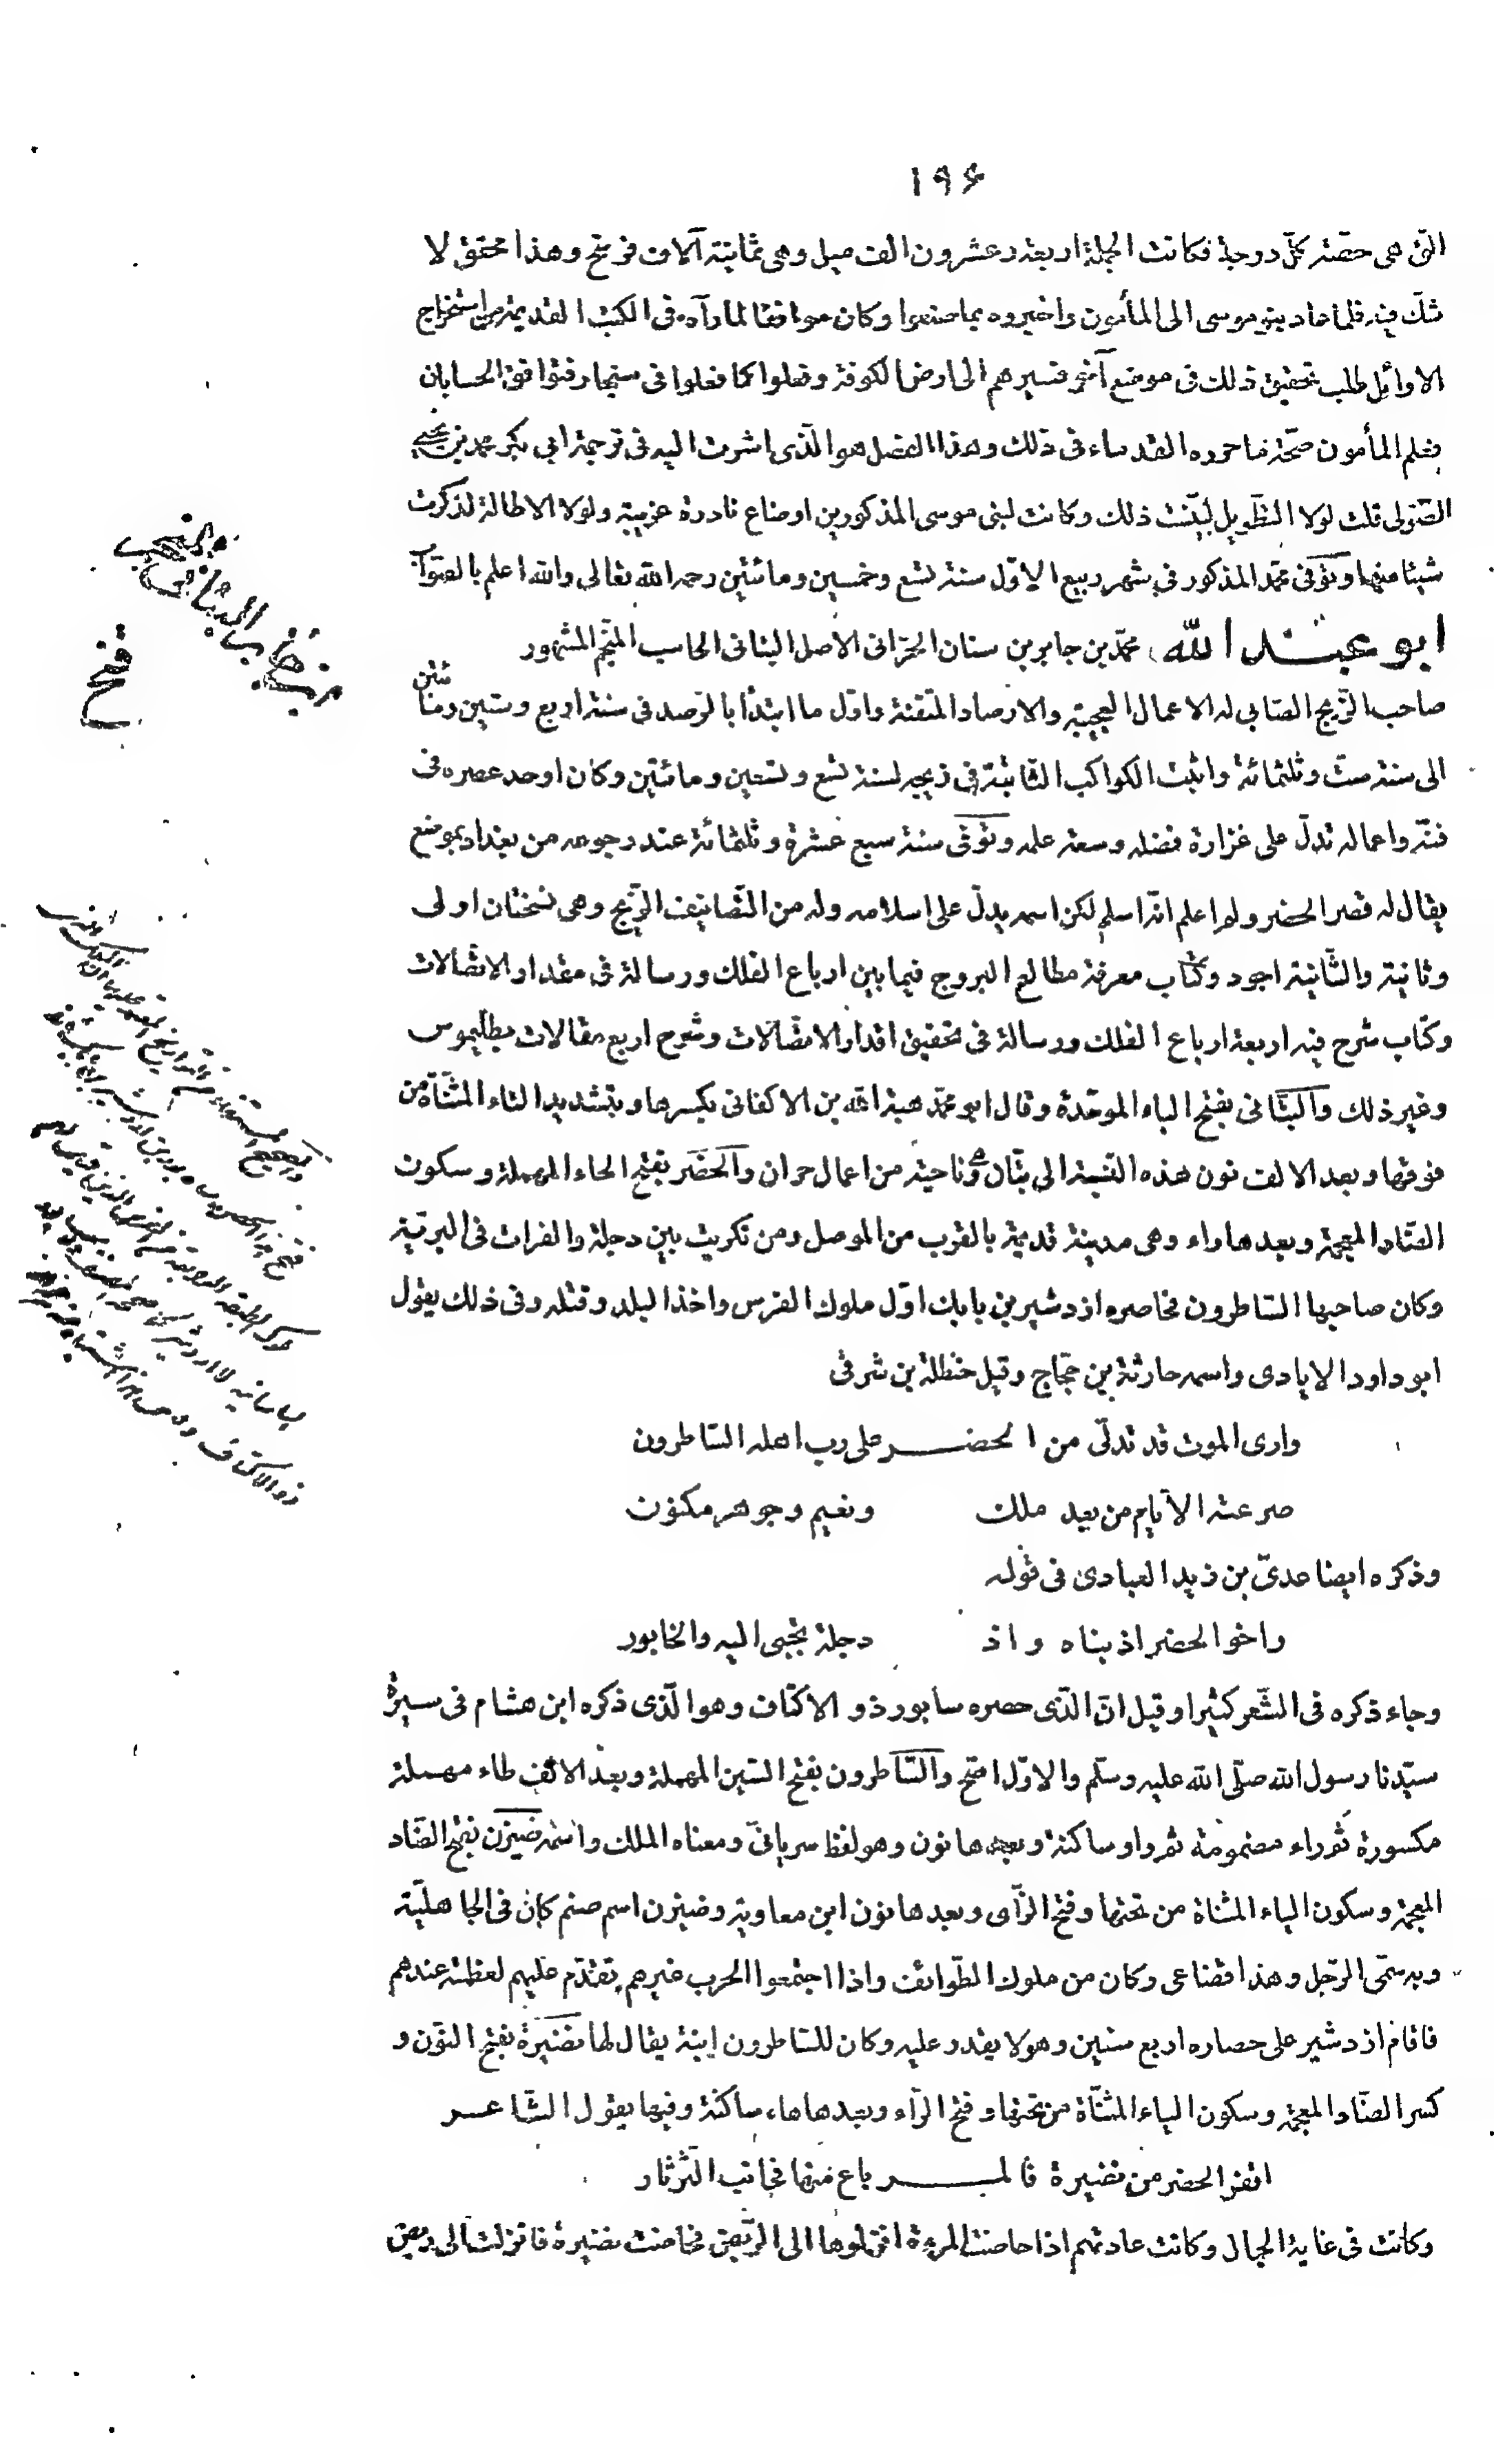 ١٩۶
الّتى هى حصّة كلّ درجة فكانت الجملة اربعة وعشرون الف ميل وهى ثمانية آلاف فرسخ وهذا محقق لا
شكّ فيه فلما عاد بنو موسى الى المأمون واخبروه بما صنعوا وكان موافقا لما رآه فى الكتب القديمة من استخراج
الاوائل طلب تحقيق ذلك فى موضع آخر فسيرهم الى ارض الكوفة وفعلوا كما فعلوا فى سنجار فتوافق الحسابان
فعلم المأمون صحّة ما حرره القدماء فى ذلك وهذا الفصل هو الّذى اشرت اليه فى ترجمة ابي بكر محمد بن يحيى
الصّولى قلت لولا التّطويل لبيّنت ذلك وكانت لبنى موسى المذكورين اوضاع نادرة غريبة ولولا الاطالة لذكرت
شيئا منها وتوفى محمّد المذكور فى شهر ربيع الاوّل سنة تسع وخمسين ومائتين رحمه الله تعالى والله اعلم بالصّواب
ابو عبد الله محمّد بن جابر بن سنان الحرّانى الاصل البتانى الحاسب المنجّم المشهور
صاحب الزّيج الصّابي له الاعمال العجيبة والارصاد المتقنة واوّل ما ابتدأ بالرّصد فى سنة اربع وستين ومائتين
الى سنة ستّ وثلثمائة واثبت الكواكب الثّابتة فى زيجه لسنة تسع وتسعين ومائتين وكان اوحد عصره فى
فنّه واعماله تدلّ على غزارة فضله وسعة علمه وتوفّى سنة سبع عشرة وثلثمائة عند رجوعه من بغداد بموضع
يقال له قصر الحضر ولم اعلم انّه اسلم لكن اسمه يدلّ على اسلامه وله من التّصانيف الزّيج وهى نسختان اولى
وثانية والثّانية اجود وكتاب معرفة مطالع البروج فيما بين ارباع الفلك ورسالة فى مقدار الاتصالات
وكتاب شرح فيه اربعة ارباع الفلك ورسالة فى تحقيق اقدار الاتصّالات وشرح اربع مقالات بطليموس
وغير ذلك والبتّانى بفتح الباء الموحّدة وقال ابو محمّد هبة الله بن الاكفانى بكسرها وبتشديد التاء المثنّاة من
فوقها وبعد الالف نون هذه النّسبة الى بتّان وهى ناحية من اعمال حران والحضر بفتح الحاء المهملة وسكون
الضّاد المعجمة وبعدها راء وهى مدينة قديمة بالقرب من الموصل ومن تكريت بين دجلة والفرات فى البرّية
وكان صاحبها السّاطرون فحاصره ازدشير بن بابك اوّل ملوك الفرس واخذ البلد وقتله وفى ذلك يقول
ابو داود الايادى واسمه حارثة بن حجّاج وقيل حنظلة بن شرقى
وارى الموت قد تدلّى من الحضـر على رب اهله السّاطرون
صرعته الايّام من بعد ملك ونعيم وجوهر مكنون
وذكره ايضا عدىّ بن زيد العبادى فى قوله
واخو الحضر اذ بناه واذ دجلة تجبى اليه والخابور
وجاء ذكره فى الشّعر كثيرا وقيل انّ الّذى حصره سابور ذو الاكتاف وهو الّذى ذكره ابن هشام فى سيرة
سيّدنا رسول الله صلّى الله عليه وسلّم والاوّل اصح والسّاطرون بفتح السّين المهملة وبعد الالف طاء مهملة
مكسورة ثم راء مضمومة ثم واو ساكنة وبعدها نون وهو لفظ سريانىّ ومعناه الملك واسمه ضيزن بفتح الضّاد
المعجمة وسكون الياء المثناة من تحتها وفتح الزّاى وبعدها نون ابن معاوية وضيزن اسم صنم كان فى الجاهليّة
وبه سمّى الرّجل وهذا قضاعى وكان من ملوك الطّوائف واذا اجتمعوا لحرب غيرهم تقدّم عليهم لعظمته عندهم
فاقام ازدشير على حصاره اربع سنين وهو لا يقدر عليه وكان للسّاطرون ابنة يقال لها نضيرة بفتح النّون و
كسر الضّاد المعجمة وسكون الياء المثنّاة من تحتها وفتح الرّاء وبعدها هاء ساكنة وفيها يقول الشّاعر
اقفر الحضر من نضيرة فالمـرباع منها فجانب الثّرثار
وكانت فى غاية الجمال وكانت عادتهم اذا حاضت المرءة انزلوها الى الرّبض فحاضت نضيرة فانزلت الى ربض
فتح